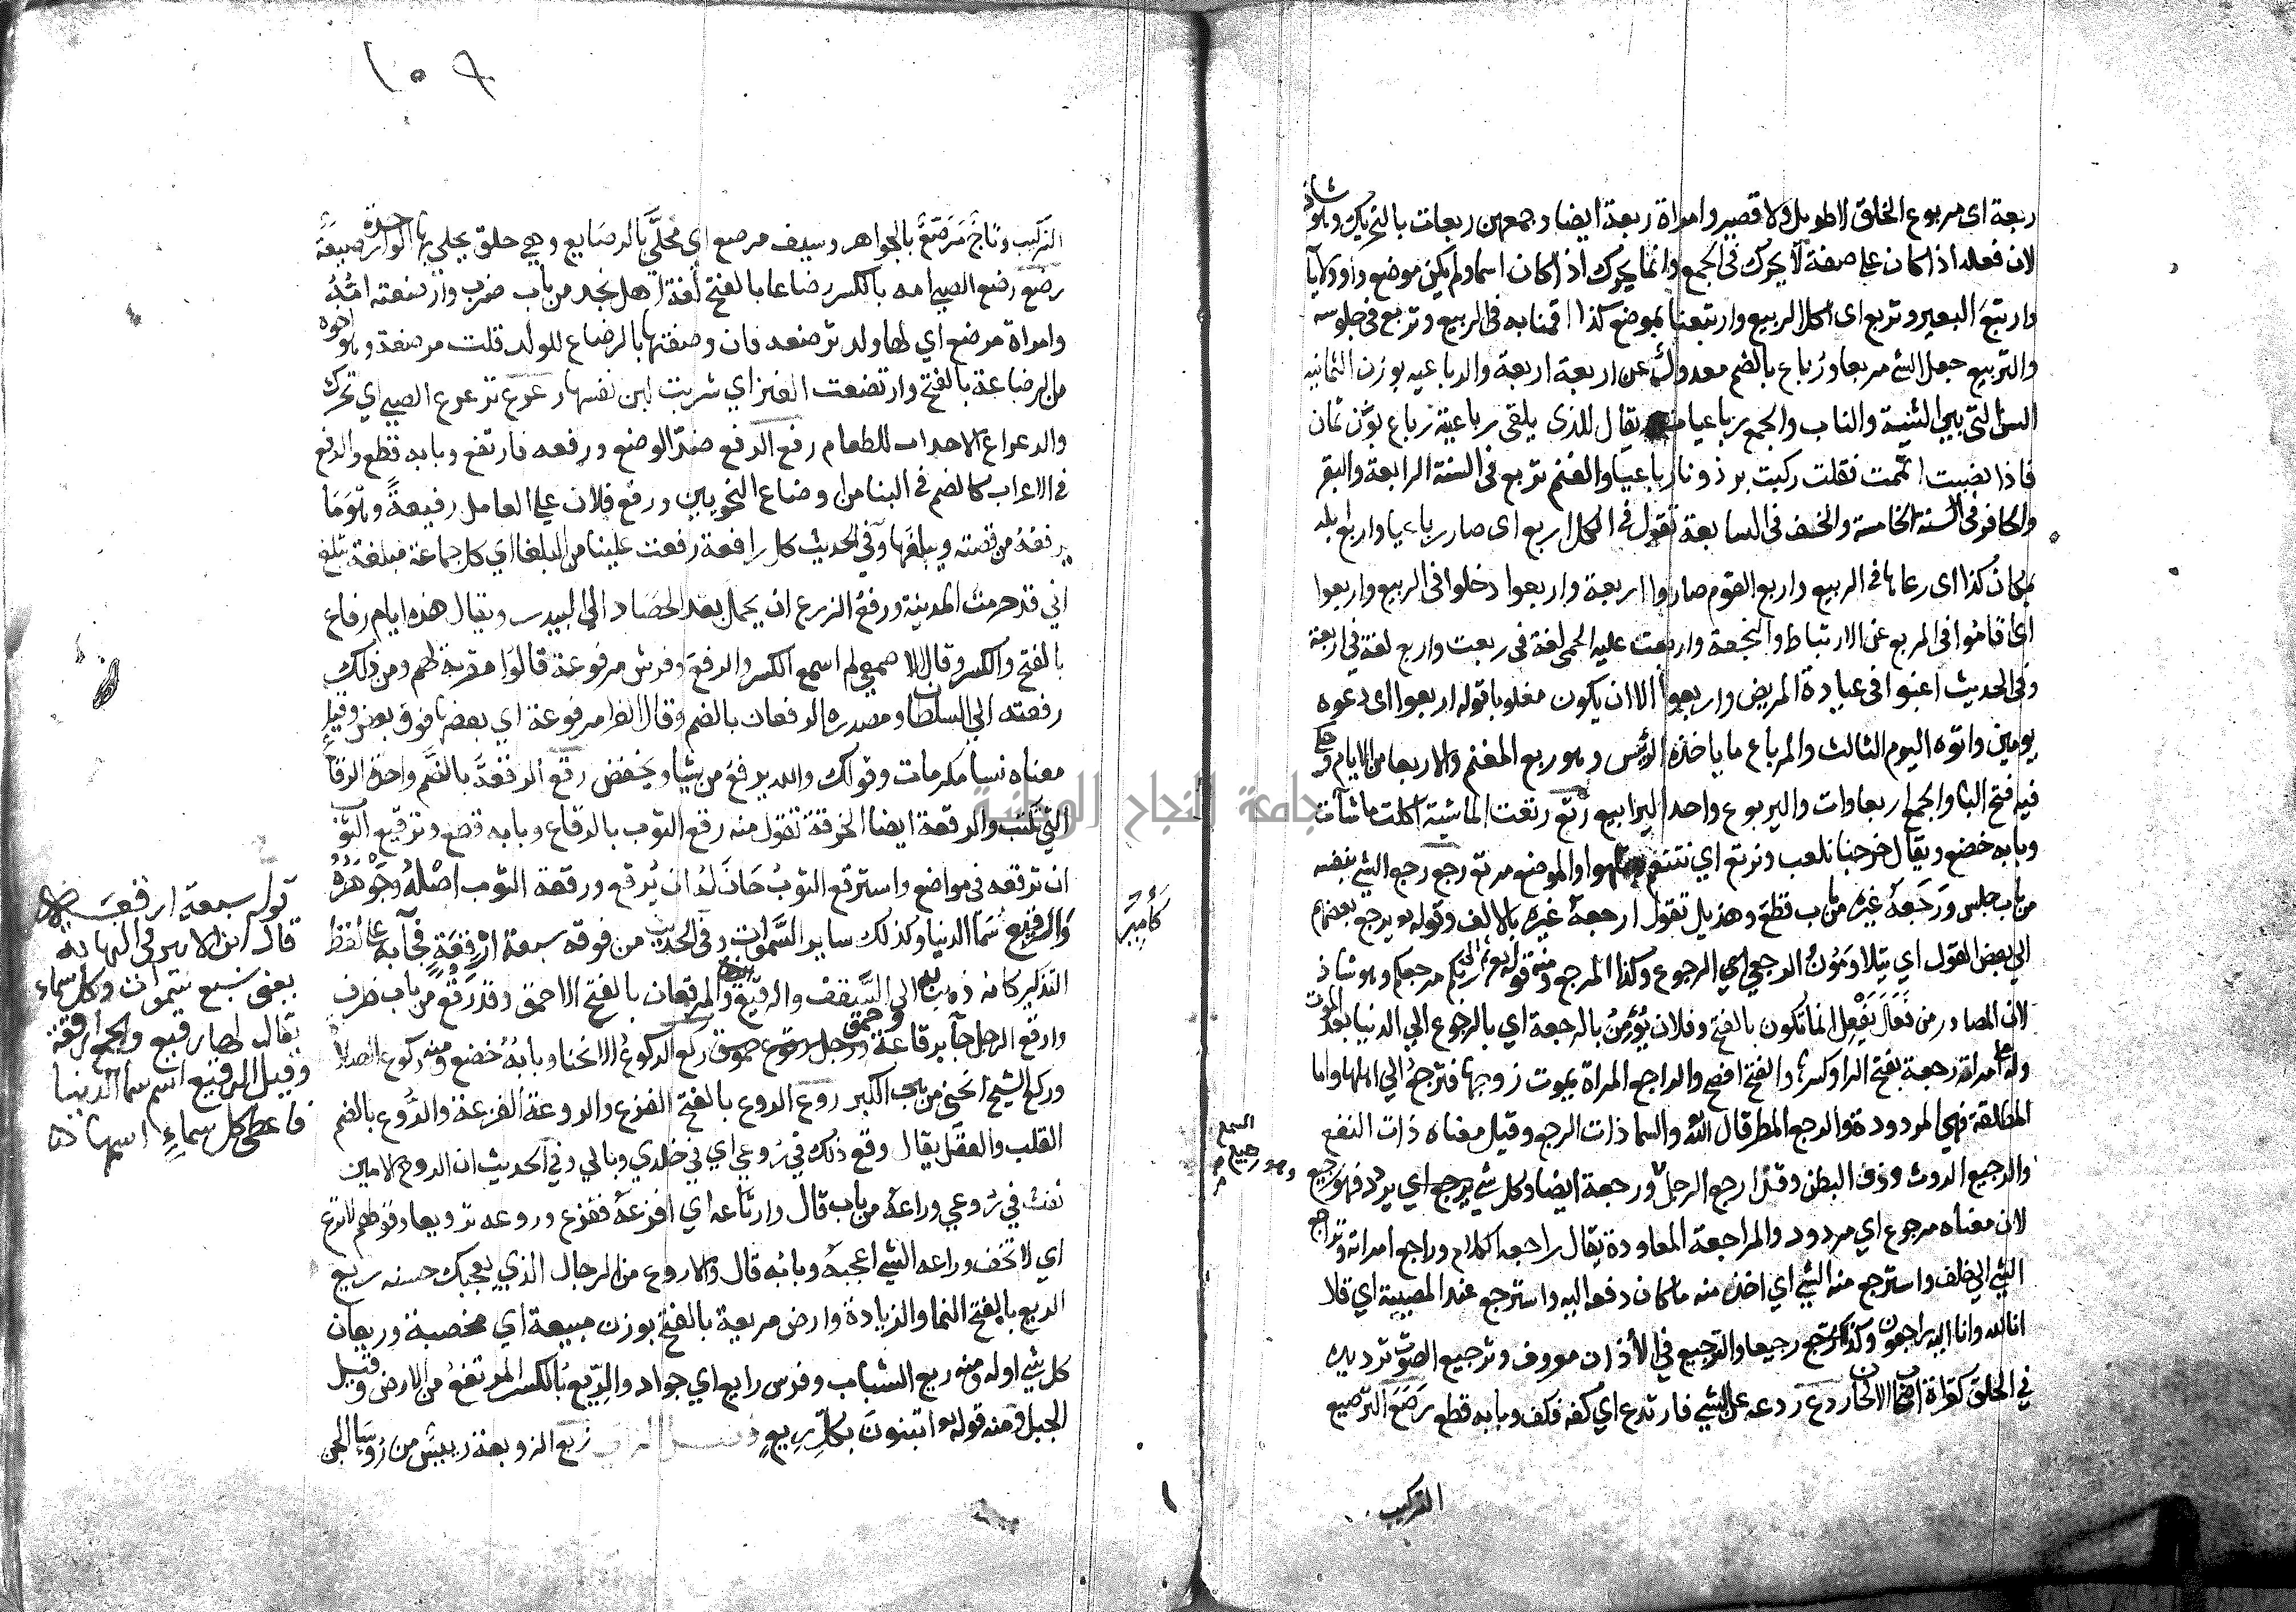 ربعة اى مربوع الخلق لا طويل ولا قصير وامراة ربعة ايضا وجمعهن ربعات بالتحريك وهو شاذ
لان فعلة اذا كان على صفة لا يحرك فى الجمع وانما يحرك اذا كان اسما ولم يكن موضع واو ولا يا
وارتبع البعير وتربع اى اكل الربيع وارتبعنا بموضع كذا اقمنا به فى الربيع وتربع فى جلوسه
والتربيع جعل الشى مربعا ورباع بالضم معدول عن اربعة اربعة والرباعيه بوزن الثمانيه
السن التى بين الثنية والناب والجمع رباعيات يقال للذى يلقى رباعية رباع بوزن ثمان
فاذا نصبت اتممت فقلت ركبت برذونا رباعيا والغنم تربع فى السنة الرابعة والبقر
والحافر فى السنه الخامسة والخف فى السابعة تقول فى الكل اربع اى صار رباعيا واربع ابله
بمكان كذا اى رعاها فى الربيع واربع القوم صاروا اربعة واربعوا دخلوا فى الربيع واربعوا
اى اقاموا فى المربع عن الارتباط والنجعة واربعت عليه الحمى لغة فى ربعت واربع لغة فى ربعة
وفى الحديث اغبوا فى عيادة المريض واربعوا الا ان يكون مغلوبا قوله اربعوا اى دعوه
يومين واتوه اليوم الثالث والمرباع ما ياخذه الرئيس وهو ربع المغنم والاربعا من الايام وحكي
فيه فتح البا والجمع اربعاوات واليربوع واحد اليرابيع رتع رتعت الماشية اكلت ما شآت
وبابه خضع ويقال خرجنا نلعب ونرتع اي نتنعم ونلهوا والموضع مرتع رجع رجع الشي بنفسه
من باب جلس ورجعه غيره من باب قطع وهذيل تقول ارجعه غيره بالالف وقوله تع يرجع بعضهم
الي بعض القول اي يتلاومون الرجعي الرجوع وكذا المرجع ومنه قوله تع الى ربكم مرجعكم وهو شاذ
لان المصادر من فعل يفعل انما تكون بالفتح وفلان يؤمن بالرجعة اي بالرجوع الي الدنيا بعد الموت
وله على امراته رجعة بفتح الرا وكسرها والفتح افصح والراجع المراة يموت زوجها فترجع الي اهلها واما
المطلقة فهي المردودة والرجع المطر قال الله والسما ذات الرجع وقيل معناه ذات النفع
والرجيع الروث وذو البطن وقد ارجع الرجل ورجعة ايضا وكل شي يرجع اي يرد فهو رجيع
لان معناه مرجوع اي مردود والمراجعة المعاودة يقال راجعه الكلام وراجع امراته وتراجع
الشي الي خلف واسترجع منه الشي اي اخذ منه ما كان دفعه اليه واسترجع عند المصيبة اي قال
انا لله وانا اليه راجعون وكذا رجع ترجيعا والترجيع في الأذان معروف وترجيع الصوت ترديده
في الحلق كقراة اصحاب الالحان ردع ردعه عن الشي فارتدع اي كفه فكف وبابه قطع رصع الترصيع
التركيب
السبع
وهو رجيع
١٥٩
التركيب وتاج مرصع بالجواهر وسيف مرصع اي محلى بالرصايع وهي حلق يحلي بها الواحدة رصيعة
رضع رضع الصبي امه بالكسر رضاعا بالفتح لغة اهل نجد من باب ضرب وارضعته امه
وامراة مرضع اي لها ولد ترضعه فان وصفتها بالرضاع للولد قلت مرضعة وهو اخوه
من الرضاعة بالفتح وارتضعت العنز اي شربت لبن نفسها رعرع ترعرع الصبي اي تحرك
والرعراع الاحداث للطعام رفع الرفع ضد الوضع ورفعه فارتفع وبابه قطع والرفع
في الاعراب كالضم في البنا من اوضاع النحويين ورفع فلان علي العامل رفيعة وهو ما
يرفعه من قصته ويبلغها وفي الحديث كل رافعة رفعت علينا من البلغا اي كل جماعة مبلغة تبلغ
اني قد حرمت المدينة ورفع الزرع ان يحمل بعد الحصاد الي البيدر ويقال هذه ايام رفاع
بالفتح والكسر وقال الاصمعي لم اسمع الكسر والرفع وفرش مرفوعة قالوا مقربة لهم ومن ذلك
رفعته الي السلطان ومصدره الرفعان بالضم وقال الفرا مرفوعة اي بعضها فوق بعض وقيل
معناه نسا مكرمات وقولك والله يرفع من يشا ويخفض رقع الرقعة بالضم واحدة الرقاع
التي تكتب والرقعة ايضا الخرقة تقول منه رقع الثوب بالرقاع وبابه قطع وترقيع الثوب
ان ترقعه في مواضع واسترقع الثوب حان له ان يرقع ورقعة الثوب اصله وجوهره
والرقيع سما الدنيا وكذلك ساير السموات وفي الحديث من فوق سبعة ارقعة فجآ به على لفظ
التذكير كانه ذهب به الي السقف والرقيع والمرقعان بالفتح الاحمق وقد رقع من باب ظرف
وارقع الرجل جآ برقاعة وحمق ركع الركوع الانحنا وبابه خضع ومنه ركوع الصلاة
وركع الشيخ انحنى من الكبر روع الروع بالفتح الفزع والروعة الفزعة والروع بالضم
القلب والعقل يقال وقع ذلك في روعي اي في خلدي وبالي وفي الحديث ان الروح الامين
نفث في روعي وراعه من باب قال وارتاعه اي افزعه ففزع وروعه ترويعا وقولهم لا ترع
اي لا تخف وراعه الشي اعجبه وبابه قال والاروع من الرجال الذي يعجبك حسنه ريع
الريع بالفتح النما والزيادة وارض مريعة بالفتح بوزن مبيعة اي مخصبة وريعان
كل شي اوله ومنه ريع الشباب وفرس رايع اي جواد والريع بالكسر المرتفع من الارض وقيل
الجبل ومنه قوله تع اتبنون بكل ريع زبع الزوبعة رييس من روسا الجن
قوله سبعة ارقعة
قال ابن الاثير في النهاية
يعني سبع سموات وكل سماء
يقال لها رقيع والجمع ارقعة
وقيل الرقيع اسم سما الدنيا
فاعطى كل سماء اسمها
جامعة النجاح الوطنية